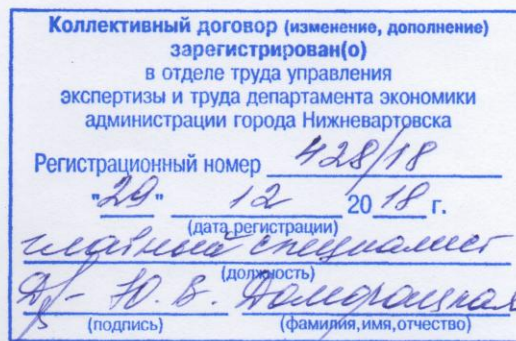 Коллективный договор (изменение, дополнение)
зарегистрирован(о)
в отделе труда управления
экспертизы и труда департамента экономики
администрации города Нижневартовска
Регистрационный номер 428/18
"29" 12 2018 г.
(дата регистрации)
главный специалист
(должность)
Ю. В.
(подпись) (фамилия,имя,отчество)